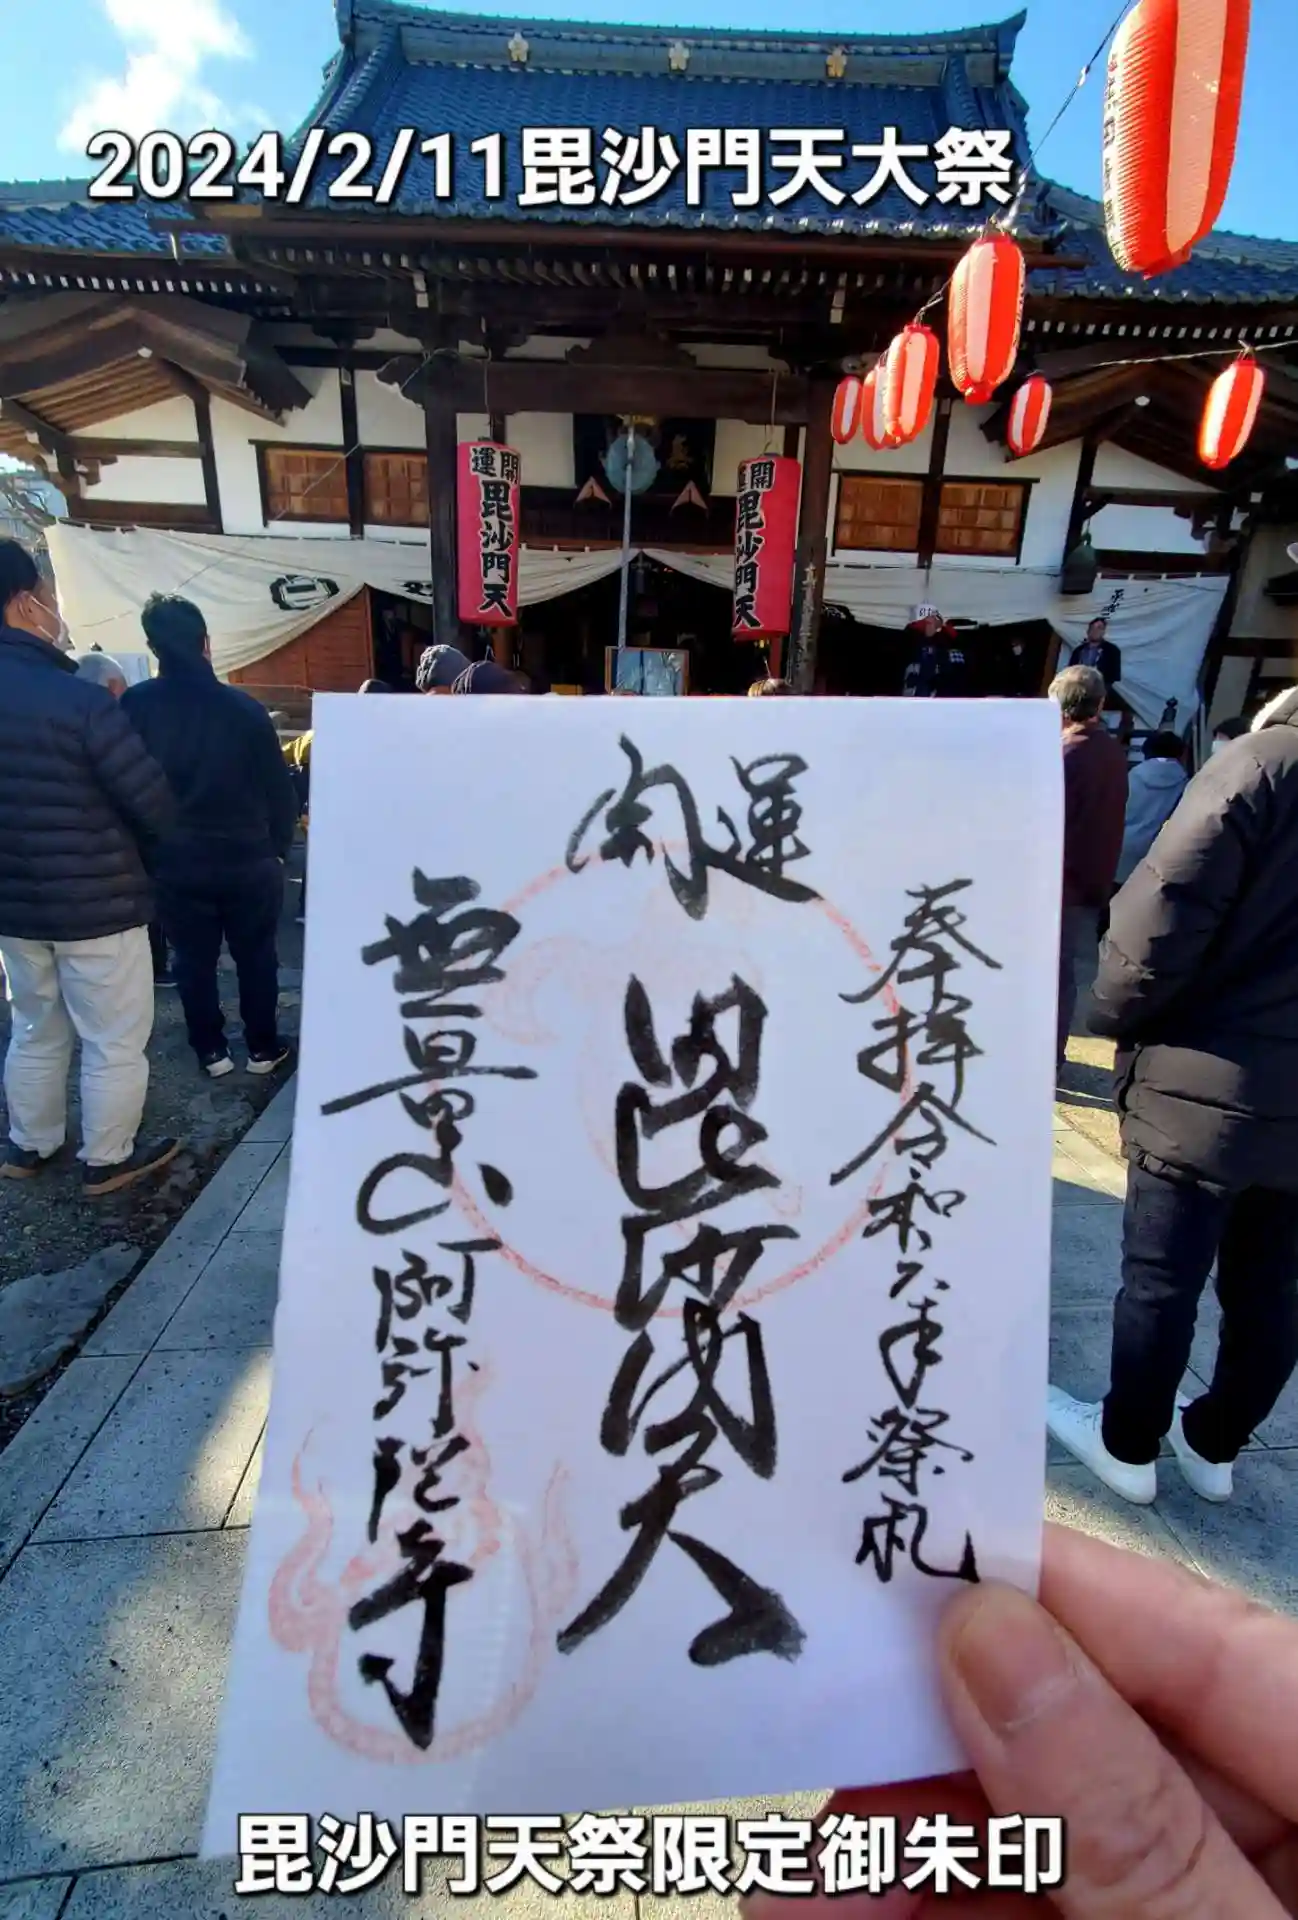 2024/2/11毘沙門天大祭
開運
毘沙門天
開運
毘沙門天
開運
奉拝令和六年祭礼
毘沙門天
無量山阿弥陀寺
毘沙門天祭限定御朱印